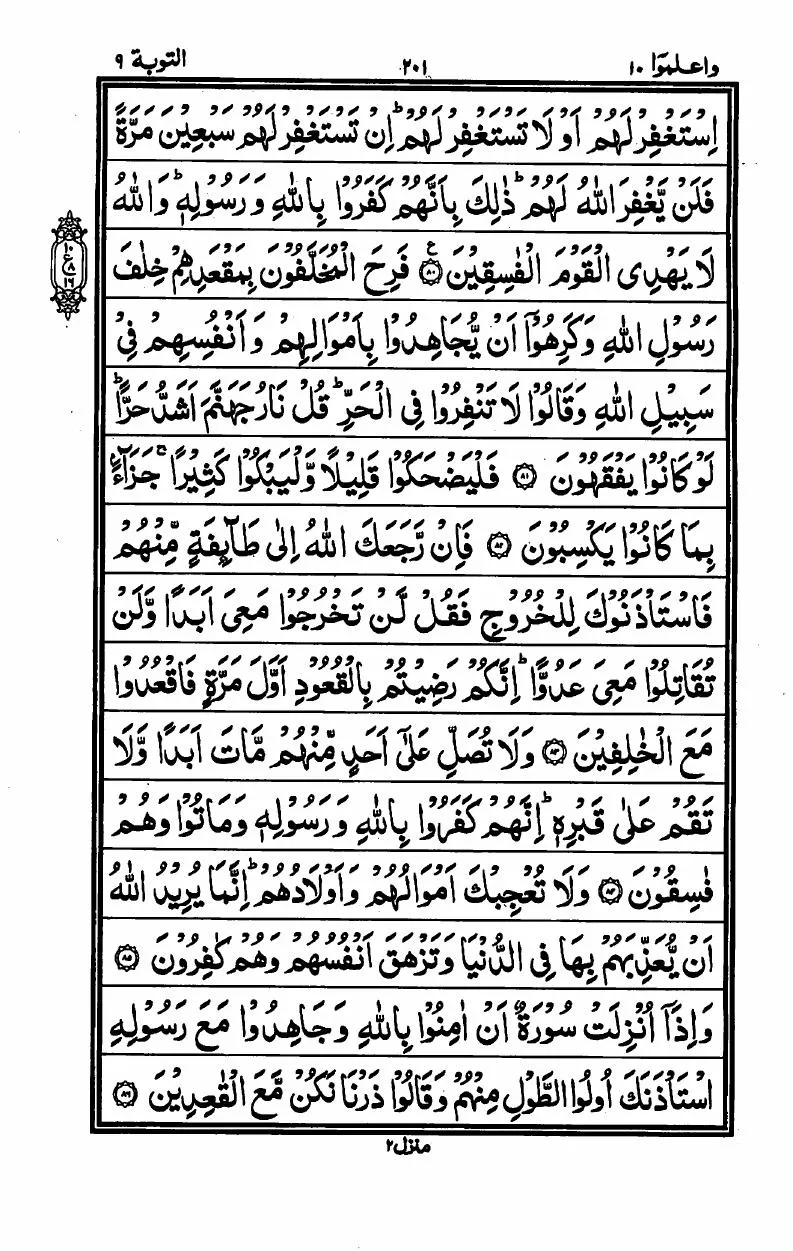 واعلموٓا ١٠
٢٠١
التوبة ٩
اِسْتَغْفِرْ لَهُمْ اَوْ لَا تَسْتَغْفِرْ لَهُمْ ؕ اِنْ تَسْتَغْفِرْ لَهُمْ سَبْعِیْنَ مَرَّةً
فَلَنْ یَّغْفِرَ اللّٰهُ لَهُمْ ؕ ذٰلِكَ بِاَنَّهُمْ كَفَرُوْا بِاللّٰهِ وَ رَسُوْلِهٖ ؕ وَ اللّٰهُ
لَا یَهْدِی الْقَوْمَ الْفٰسِقِیْنَ ۟ع ۸۰ فَرِحَ الْمُخَلَّفُوْنَ بِمَقْعَدِهِمْ خِلٰفَ
رَسُوْلِ اللّٰهِ وَ كَرِهُوْۤا اَنْ یُّجَاهِدُوْا بِاَمْوَالِهِمْ وَ اَنْفُسِهِمْ فِیْ
سَبِیْلِ اللّٰهِ وَ قَالُوْا لَا تَنْفِرُوْا فِی الْحَرِّ ؕ قُلْ نَارُ جَهَنَّمَ اَشَدُّ حَرًّا ؕ
لَوْ كَانُوْا یَفْقَهُوْنَ ۸۱ فَلْیَضْحَكُوْا قَلِیْلًا وَّ لْیَبْكُوْا كَثِیْرًا ۚ جَزَآءًۢ
بِمَا كَانُوْا یَكْسِبُوْنَ ۸۲ فَاِنْ رَّجَعَكَ اللّٰهُ اِلٰی طَآىِٕفَةٍ مِّنْهُمْ
فَاسْتَاْذَنُوْكَ لِلْخُرُوْجِ فَقُلْ لَّنْ تَخْرُجُوْا مَعِیَ اَبَدًا وَّ لَنْ
تُقَاتِلُوْا مَعِیَ عَدُوًّا ؕ اِنَّكُمْ رَضِیْتُمْ بِالْقُعُوْدِ اَوَّلَ مَرَّةٍ فَاقْعُدُوْا
مَعَ الْخٰلِفِیْنَ ۸۳ وَ لَا تُصَلِّ عَلٰۤی اَحَدٍ مِّنْهُمْ مَّاتَ اَبَدًا وَّ لَا
تَقُمْ عَلٰی قَبْرِهٖ ؕ اِنَّهُمْ كَفَرُوْا بِاللّٰهِ وَ رَسُوْلِهٖ وَ مَاتُوْا وَ هُمْ
فٰسِقُوْنَ ۸۴ وَ لَا تُعْجِبْكَ اَمْوَالُهُمْ وَ اَوْلَادُهُمْ ؕ اِنَّمَا یُرِیْدُ اللّٰهُ
اَنْ یُّعَذِّبَهُمْ بِهَا فِی الدُّنْیَا وَ تَزْهَقَ اَنْفُسُهُمْ وَ هُمْ كٰفِرُوْنَ ۸۵
وَ اِذَاۤ اُنْزِلَتْ سُوْرَةٌ اَنْ اٰمِنُوْا بِاللّٰهِ وَ جَاهِدُوْا مَعَ رَسُوْلِهِ
اسْتَاْذَنَكَ اُولُوا الطَّوْلِ مِنْهُمْ وَ قَالُوْا ذَرْنَا نَكُنْ مَّعَ الْقٰعِدِیْنَ ۸۶
١٠
ع ٨
١٦
منزل ٢